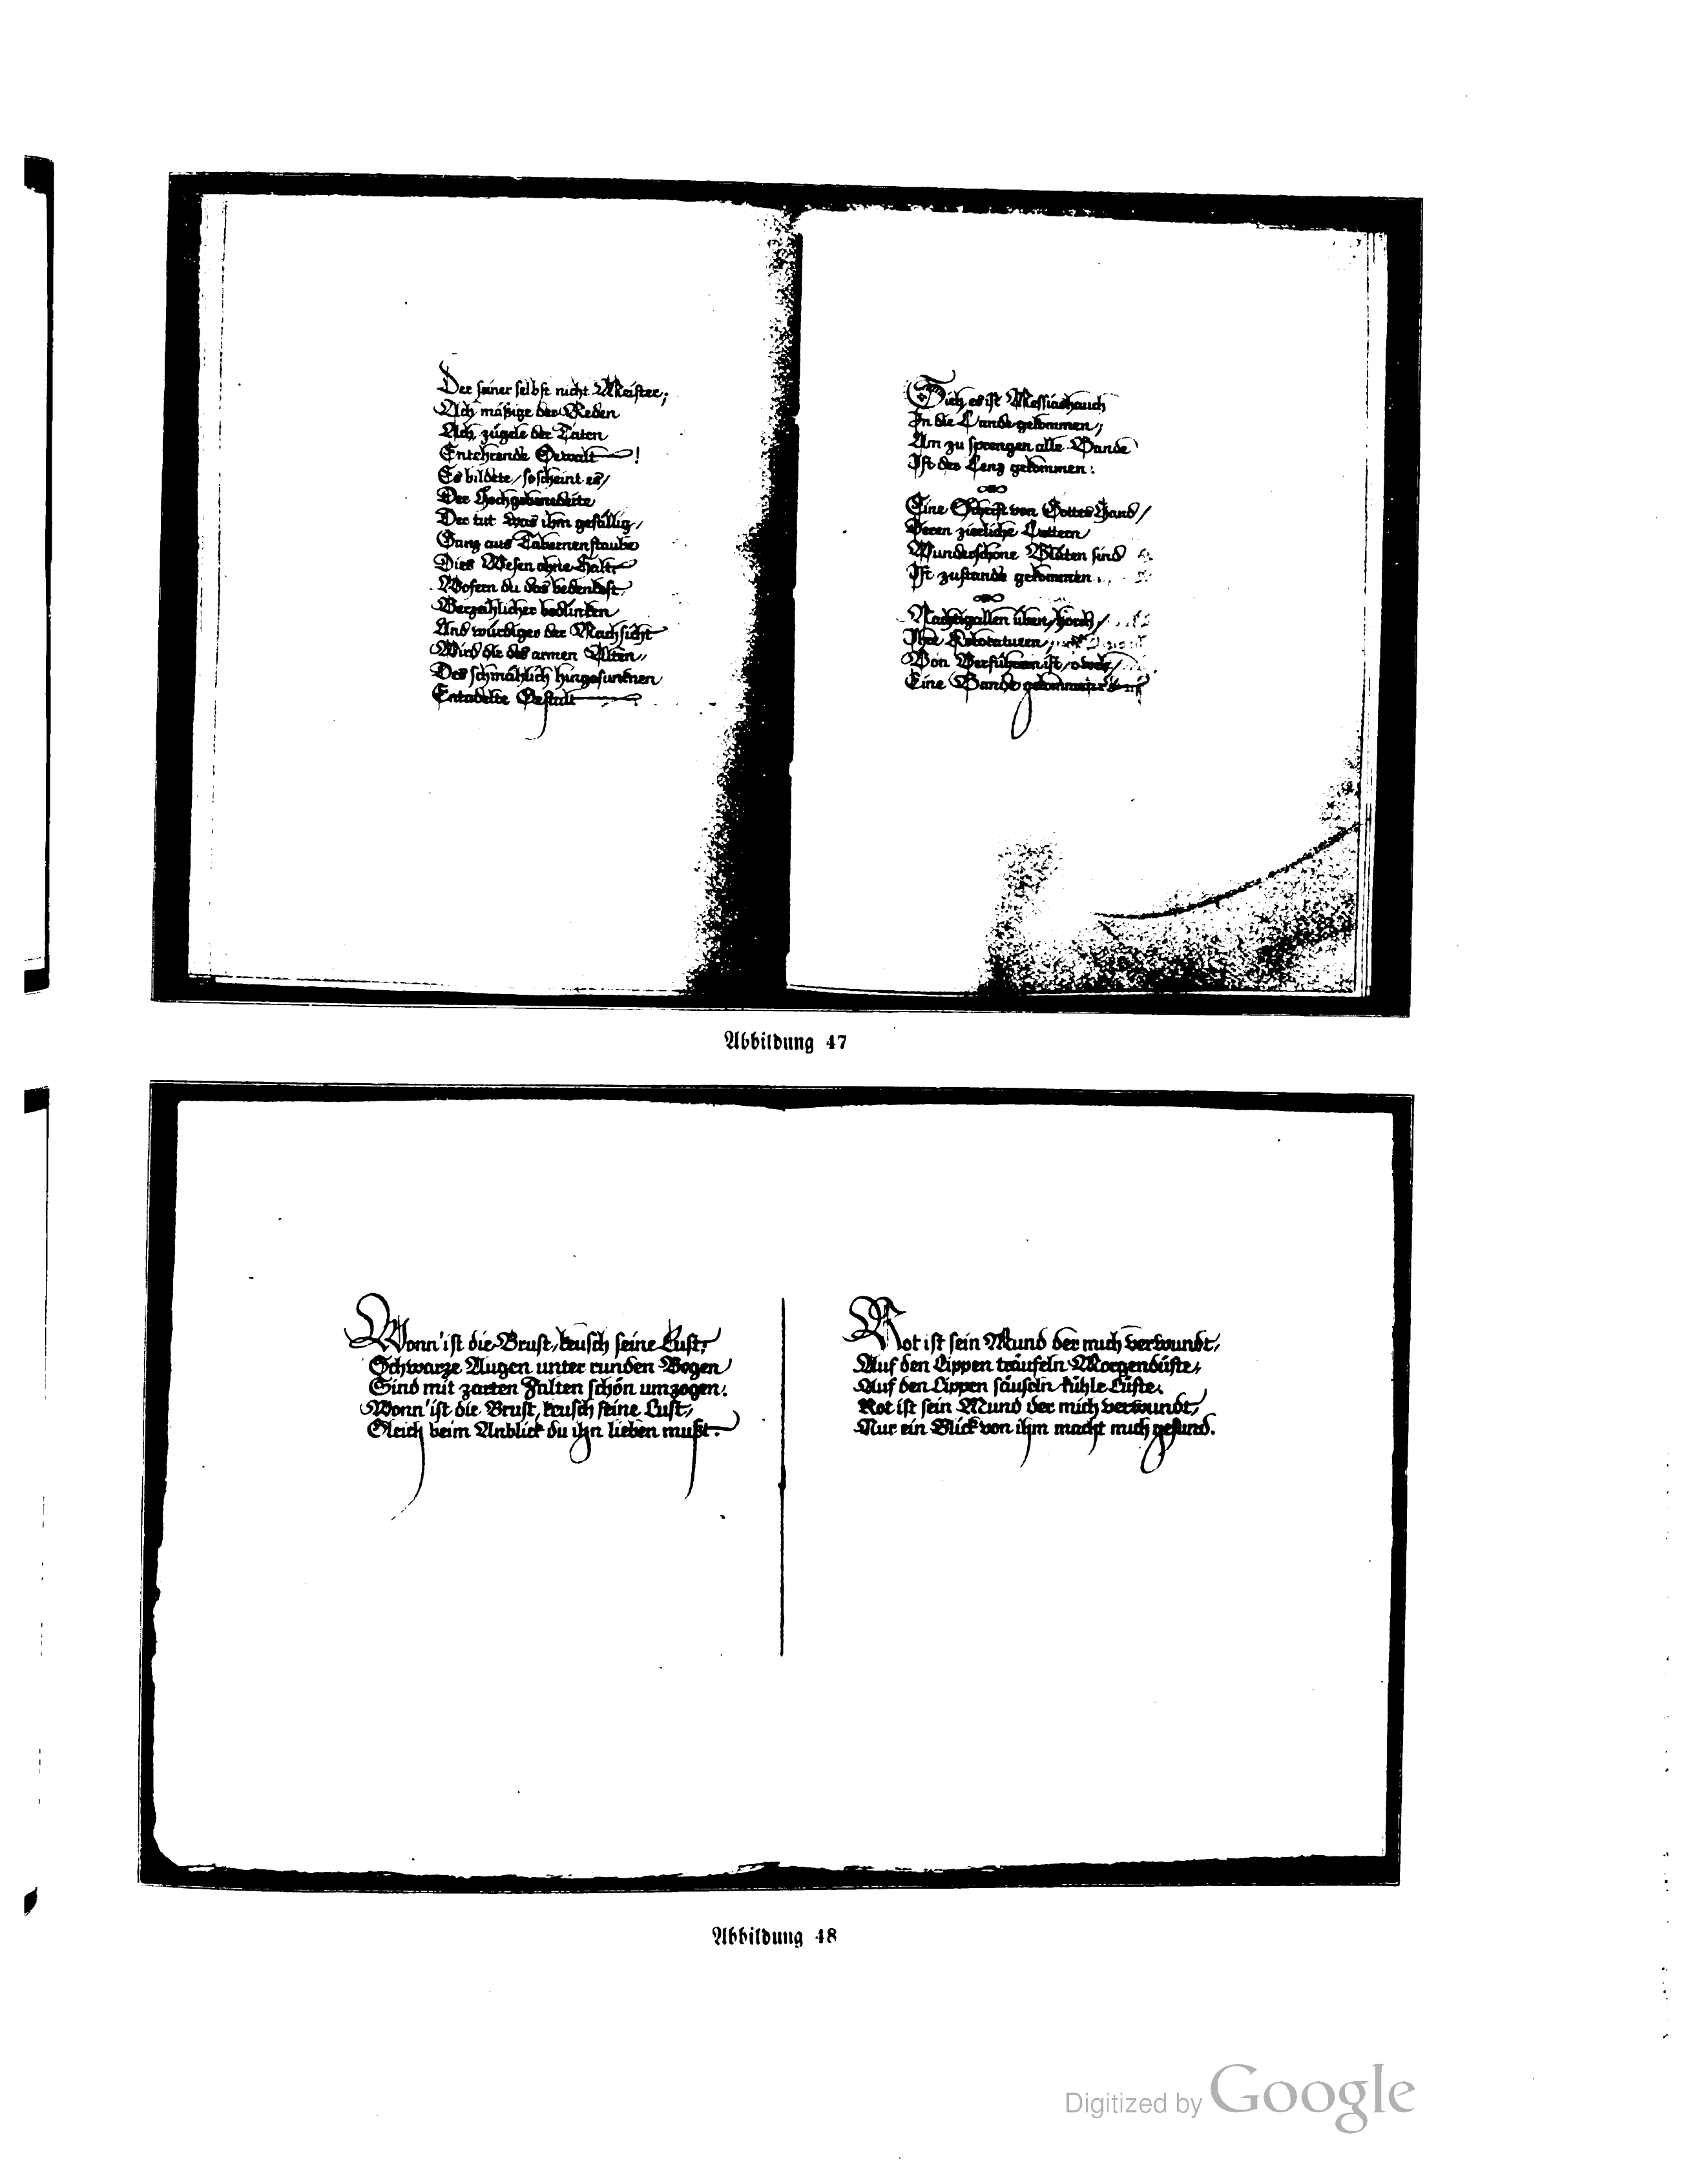 Der seiner selbst nicht Meister,
Ach mäßige der Reden
Ach zügele der Taten
Entehrende Gewalt!
Es bildete, so scheint es,
Der Hochgebenedeite
Der tut was ihm gefällig,
Ganz aus Tabernenstaube
Dies Wesen ohne Halt.
Wofern du das bedenkest
Verzeihlicher bedünken
Und würdiger der Nachsicht
Wird dir des armen Alten,
Des schmählich hingesunknen
Entadelte Gestalt.
Sieh, es ist Messiashauch
In die Lande gekommen,
Um zu sprengen alle Bande
Ist der Lenz gekommen:
Eine Schrift von Gottes Hand,
Deren zierliche Lettern
Wunderschöne Blüten sind
Ist zustande gekommen.
Nachtigallen üben, horch,
Ihre Koloraturen,
Von Verführern ist, o weh,
Eine Bande gekommen
Abbildung 47
Wonn' ist die Brust, keusch seine Lust,
Schwarze Augen unter runden Bogen
Sind mit zarten Falten schön umzogen.
Wonn' ist die Brust, keusch seine Lust,
Gleich beim Anblick du ihn lieben mußt.
Rot ist sein Mund der mich verwundt,
Auf den Lippen träufeln Morgendüfte,
Auf den Lippen säuseln kühle Lüfte.
Rot ist sein Mund der mich verwundt,
Nur ein Blick von ihm macht mich gesund.
Abbildung 48
Digitized by Google